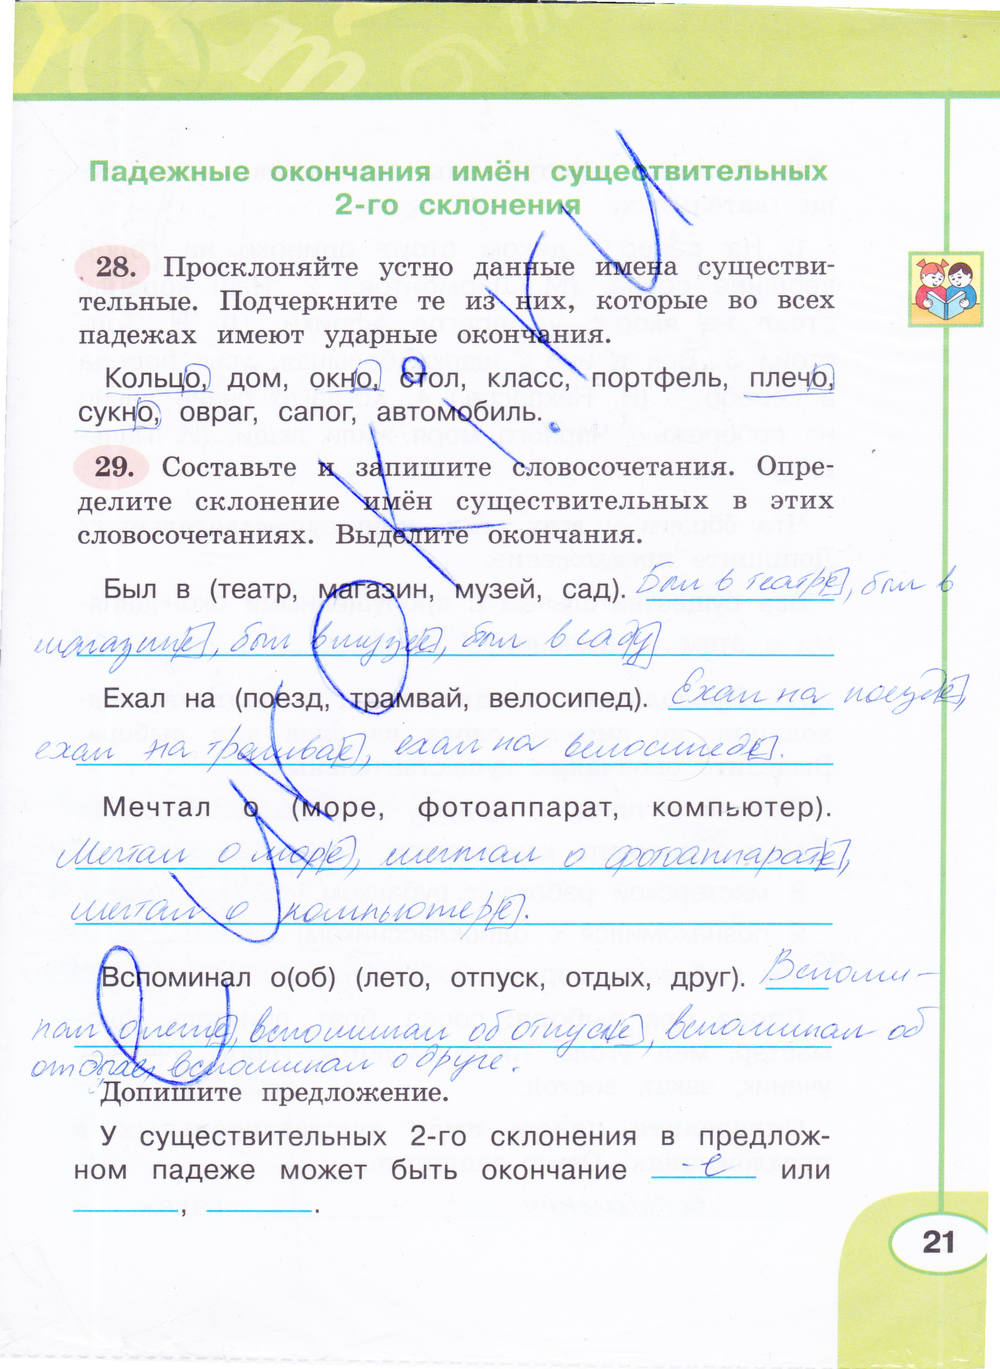 Падежные окончания имён существительных
2-го склонения
28. Просклоняйте устно данные имена существи-
тельные. Подчеркните те из них, которые во всех
падежах имеют ударные окончания.
Кольцо, дом, окно, стол, класс, портфель, плечо,
сукно, овраг, сапог, автомобиль.
29. Составьте и запишите словосочетания. Опре-
делите склонение имён существительных в этих
словосочетаниях. Выделите окончания.
Был в (театр, магазин, музей, сад). Был в театре, был в
магазине, был в музее, был в саду
Ехал на (поезд, трамвай, велосипед). Ехал на поезде,
ехал на трамвае, ехал на велосипеде.
Мечтал о (море, фотоаппарат, компьютер).
Мечтал о море, мечтал о фотоаппарате,
мечтал о компьютере.
Вспоминал о(об) (лето, отпуск, отдых, друг). Вспоми-
нал о лете, вспоминал об отпуске, вспоминал об
отдыхе, вспоминал о друге.
Допишите предложение.
У существительных 2-го склонения в предлож-
ном падеже может быть окончание -е или
, .
21